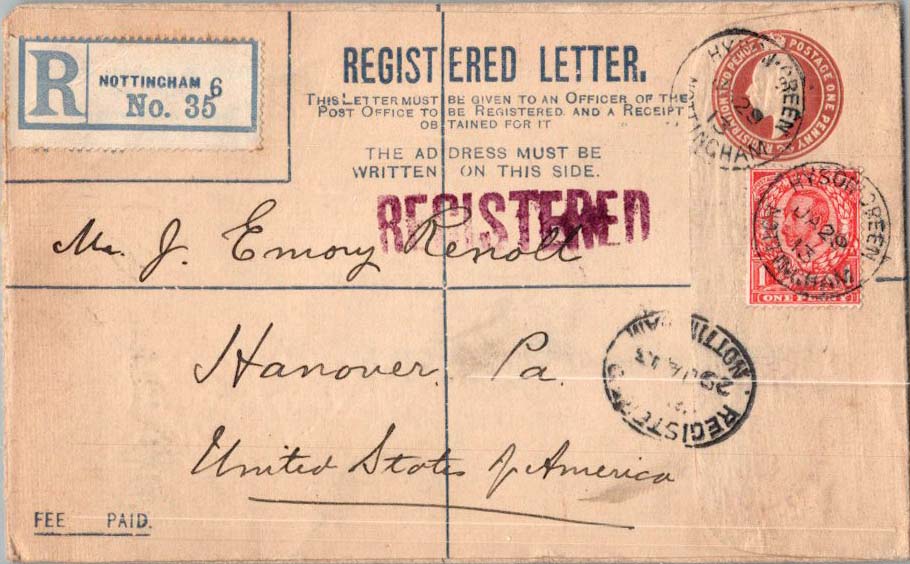 R NOTTINGHAM 6
No. 35
REGISTERED LETTER.
THIS LETTER MUST BE GIVEN TO AN OFFICER OF THE
POST OFFICE TO BE REGISTERED, AND A RECEIPT
OBTAINED FOR IT
THE ADDRESS MUST BE
WRITTEN ON THIS SIDE.
HYSON GREEN
JA 29
13
NOTTINGHAM
REGISTERED
HYSON GREEN
JA 29
13
NOTTINGHAM
ONE PENNY
Mr. J. Emory Renoll
NOTTINGHAM
29 JA 13
REGISTERED
Hanover. Pa.
United States of America
FEE PAID.